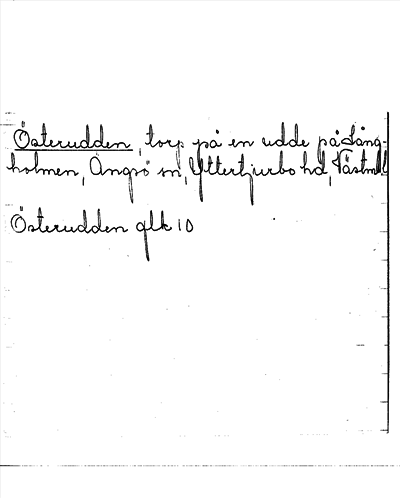 Österudden, torp på en udde på Lång-
holmen, Ängsö sn, Yttertjurbo hd, Västml
Österudden glk 10